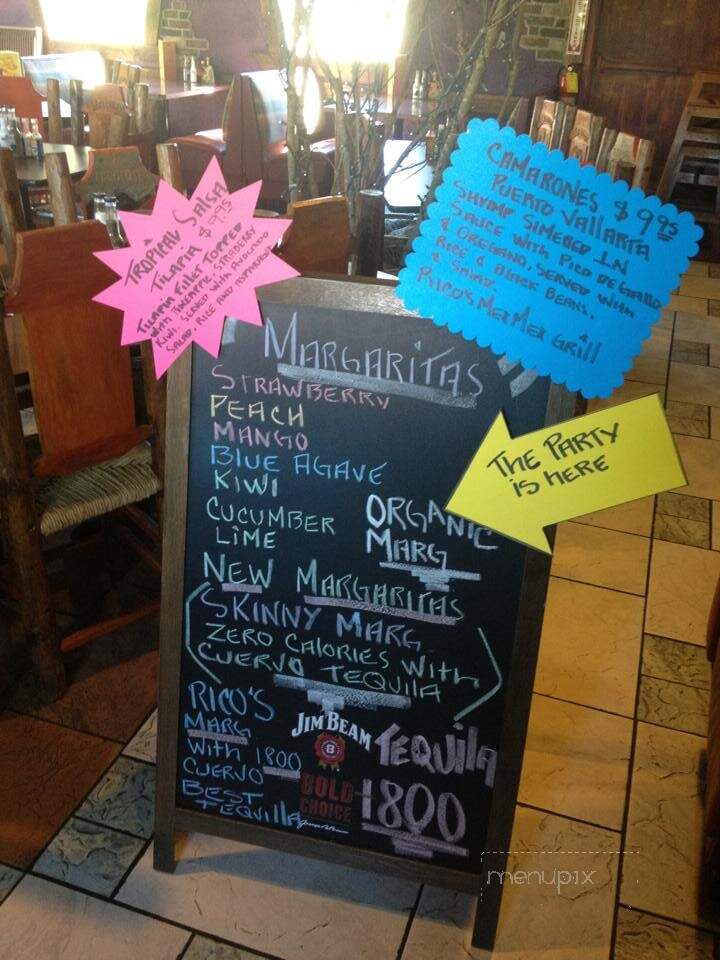 TROPICAL SALSA
TILAPIA $9.95
TILAPIA FILLET TOPPED
WITH PINEAPPLE, STRAWBERRY
KIWI. SERVED WITH AVOCADO
SALAD, RICE AND ASPARAGUS
CAMARONES $9.95
PUERTO VALLARTA
SHRIMP SIMERED IN
SAUCE WITH PICO DE GALLO
& OREGANO, SERVED WITH
RICE & BLACK BEANS,
& SALAD.
RICO'S MEX MEX GRILL
THE PARTY
IS HERE
MARGARITAS
STRAWBERRY
PEACH
MANGO
BLUE AGAVE
KIWI
CUCUMBER
LIME
ORGANIC
MARG
NEW MARGARITAS
SKINNY MARG
ZERO CALORIES WITH
CUERVO TEQUILA
RICO'S
MARG
WITH 1800
CUERVO
BEST
TEQUILLA
JIM BEAM
BOLD
CHOICE
TEQUILA
1800
menupix